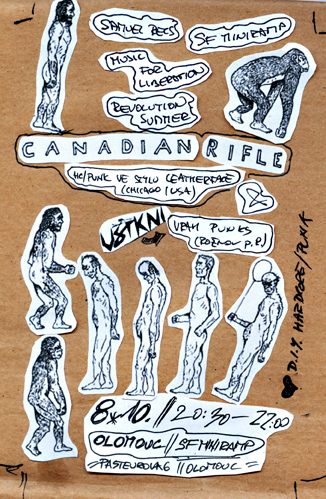 SF MINIRAMPA
MUSIC
FOR
LIBERATION
REVOLUTION
SUMMER
CANADIAN RIFLE
HC/PUNK VE STYLU LEATHERFACE
(CHICAGO/USA)
&
VŠTKNI
URAH PUNKS
(ROŽNOV P.R.)
D.I.Y. HARDCORE/PUNK
8.10. // 20:30-22:00
OLOMOUC // SF MINIRAMP
PASTEUROVA 6 // OLOMOUC